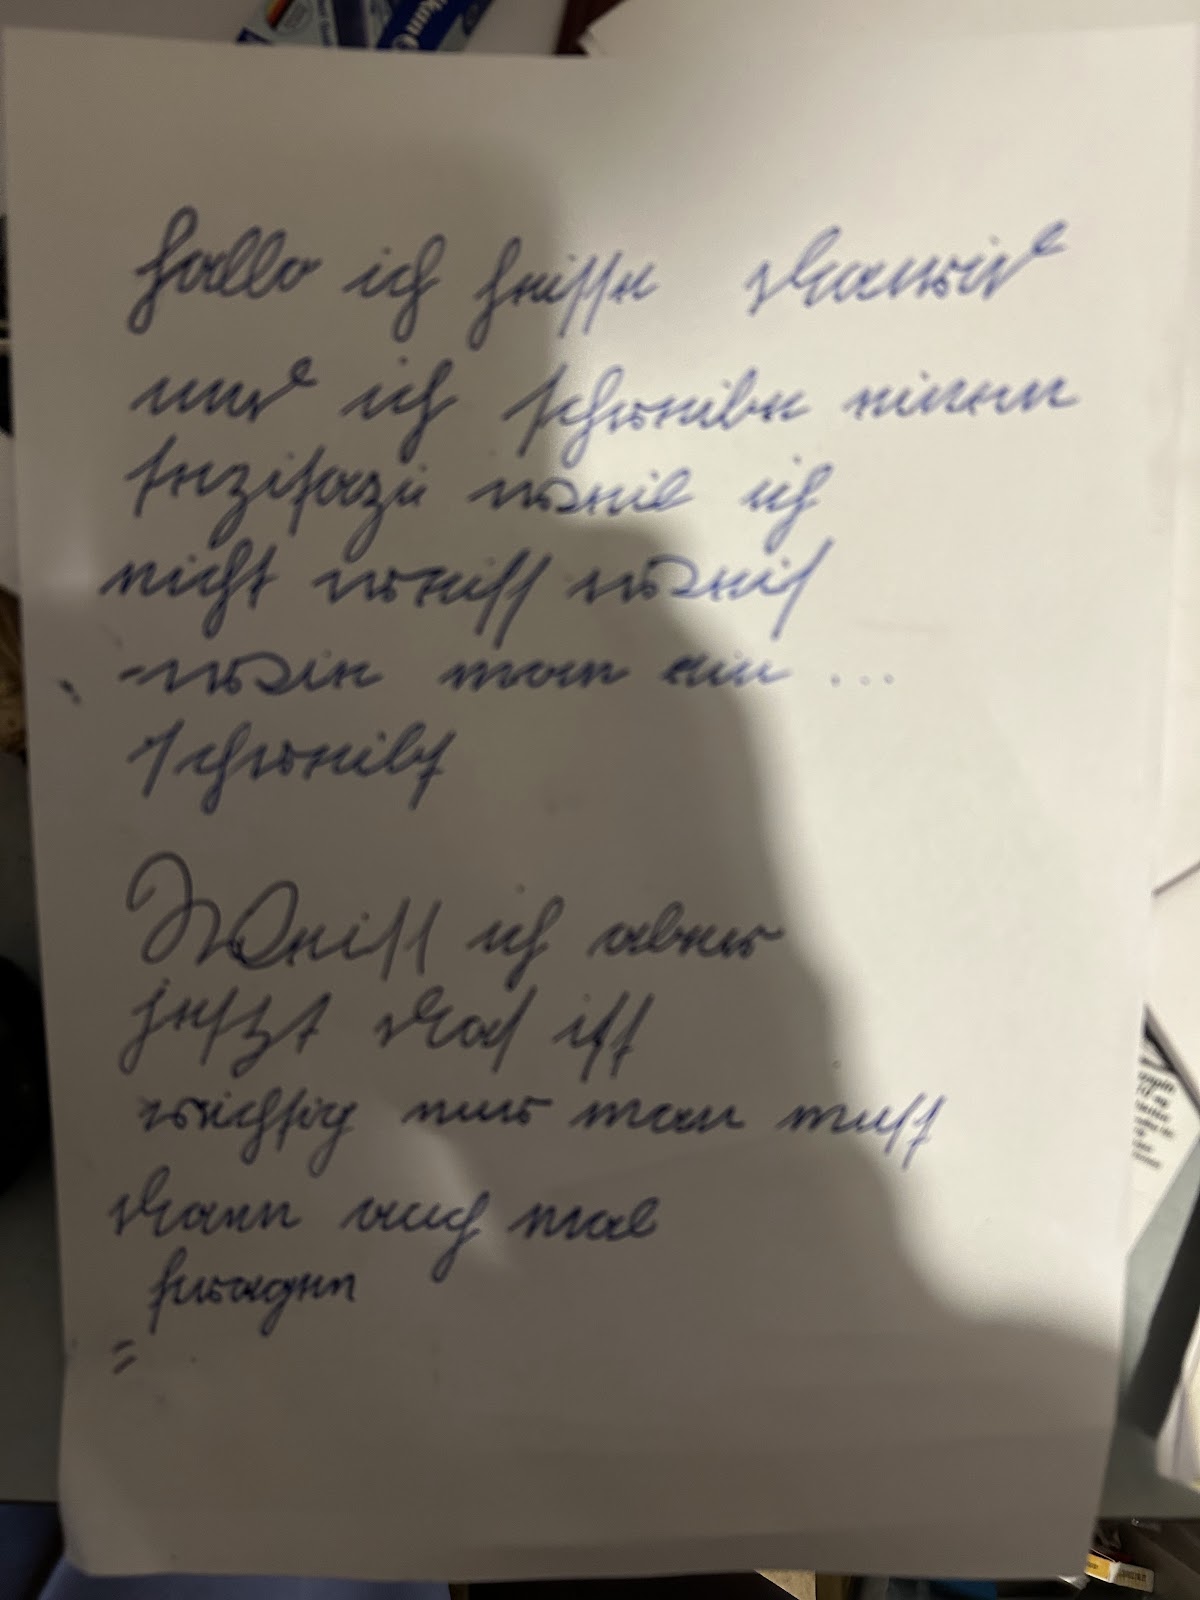 hallo ich heisse David
und ich schreibe einen
weil ich
nicht weiss weis
wie man ein ...
schreibt
Weiss ich aber
jetzt das ist
wichtig nur man muss
dann auch mal
fragen